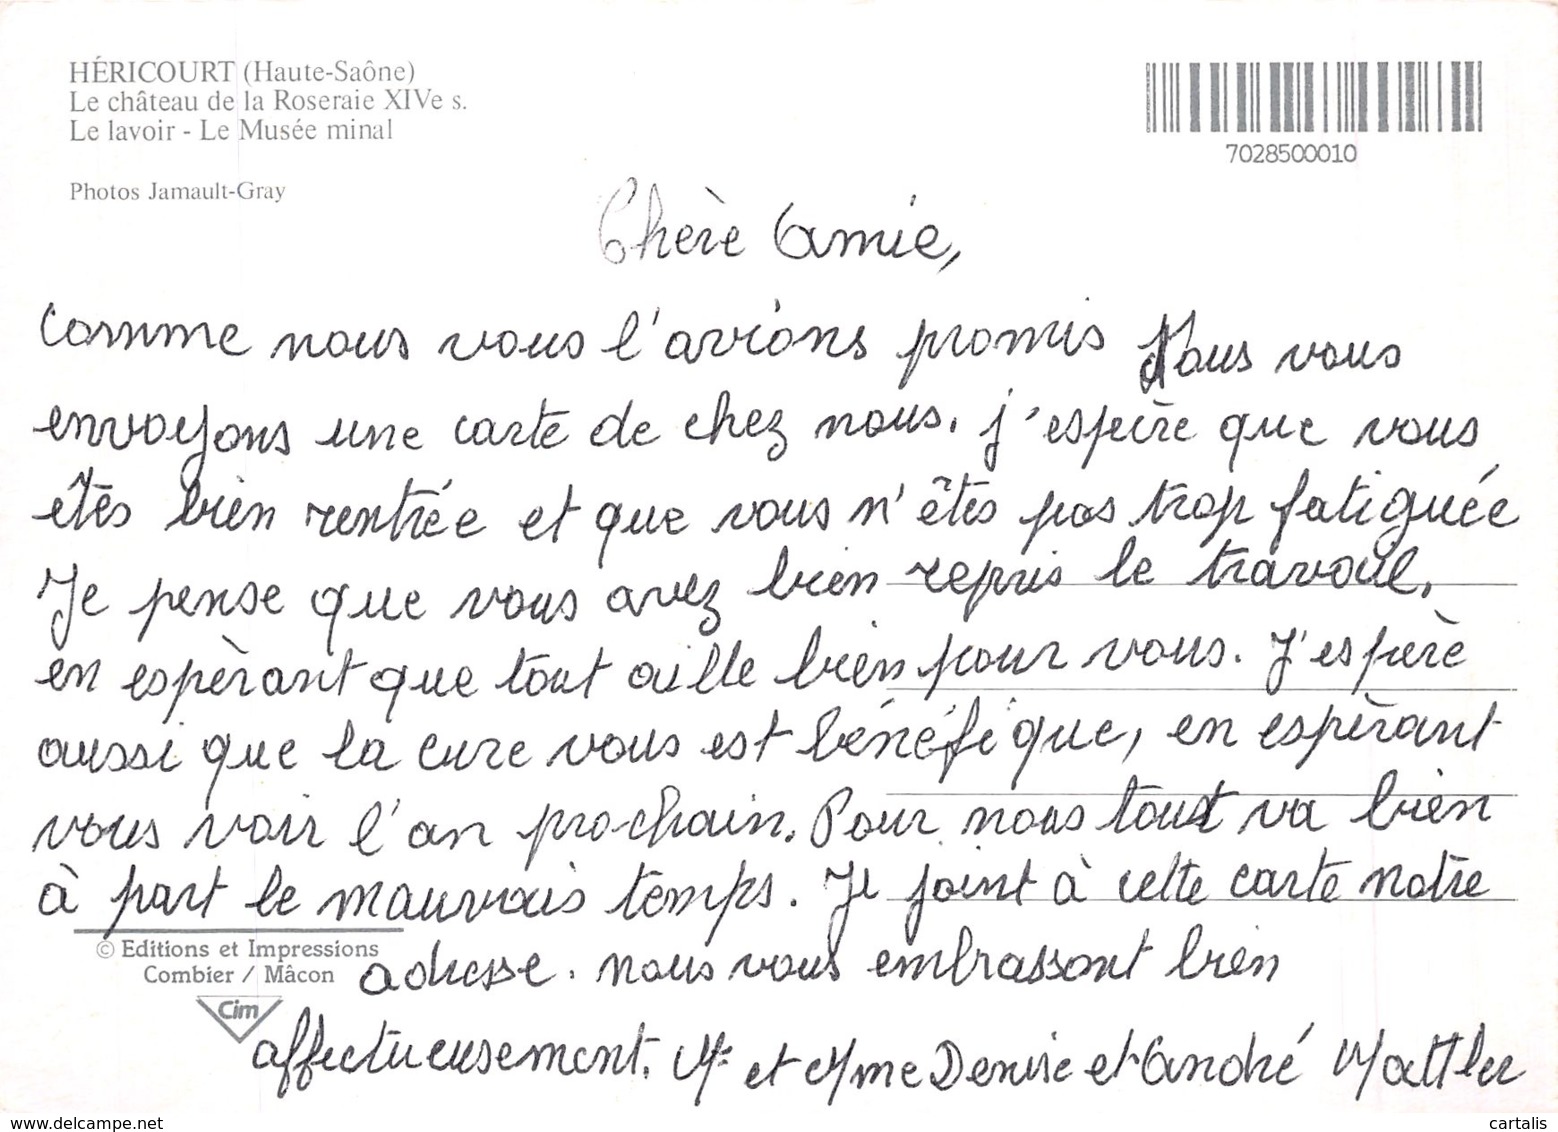 HÉRICOURT (Haute-Saône)
Le château de la Roseraie XIVe s.
Le lavoir - Le Musée minal
Photos Jamault-Gray
7028500010
Chère Amie,
Comme nous vous l'avions promis Nous vous
envoyons une carte de chez nous. j'espère que vous
êtes bien rentrée et que vous n'êtes pas trop fatiguée
Je pense que vous avez bien repris le travail.
en espèrant que tout aille bien pour vous. J'espère
aussi que la cure vous est bénéfique, en espèrant
vous voir l'an prochain. Pour nous tout va bien
à part le mauvais temps. Je joint à cette carte notre
adresse. nous vous embrassont bien
affectueusement. Mr et Mme Denise et André Mattler
© Editions et Impressions
Combier / Mâcon
Cim
www.delcampe.net
cartalis